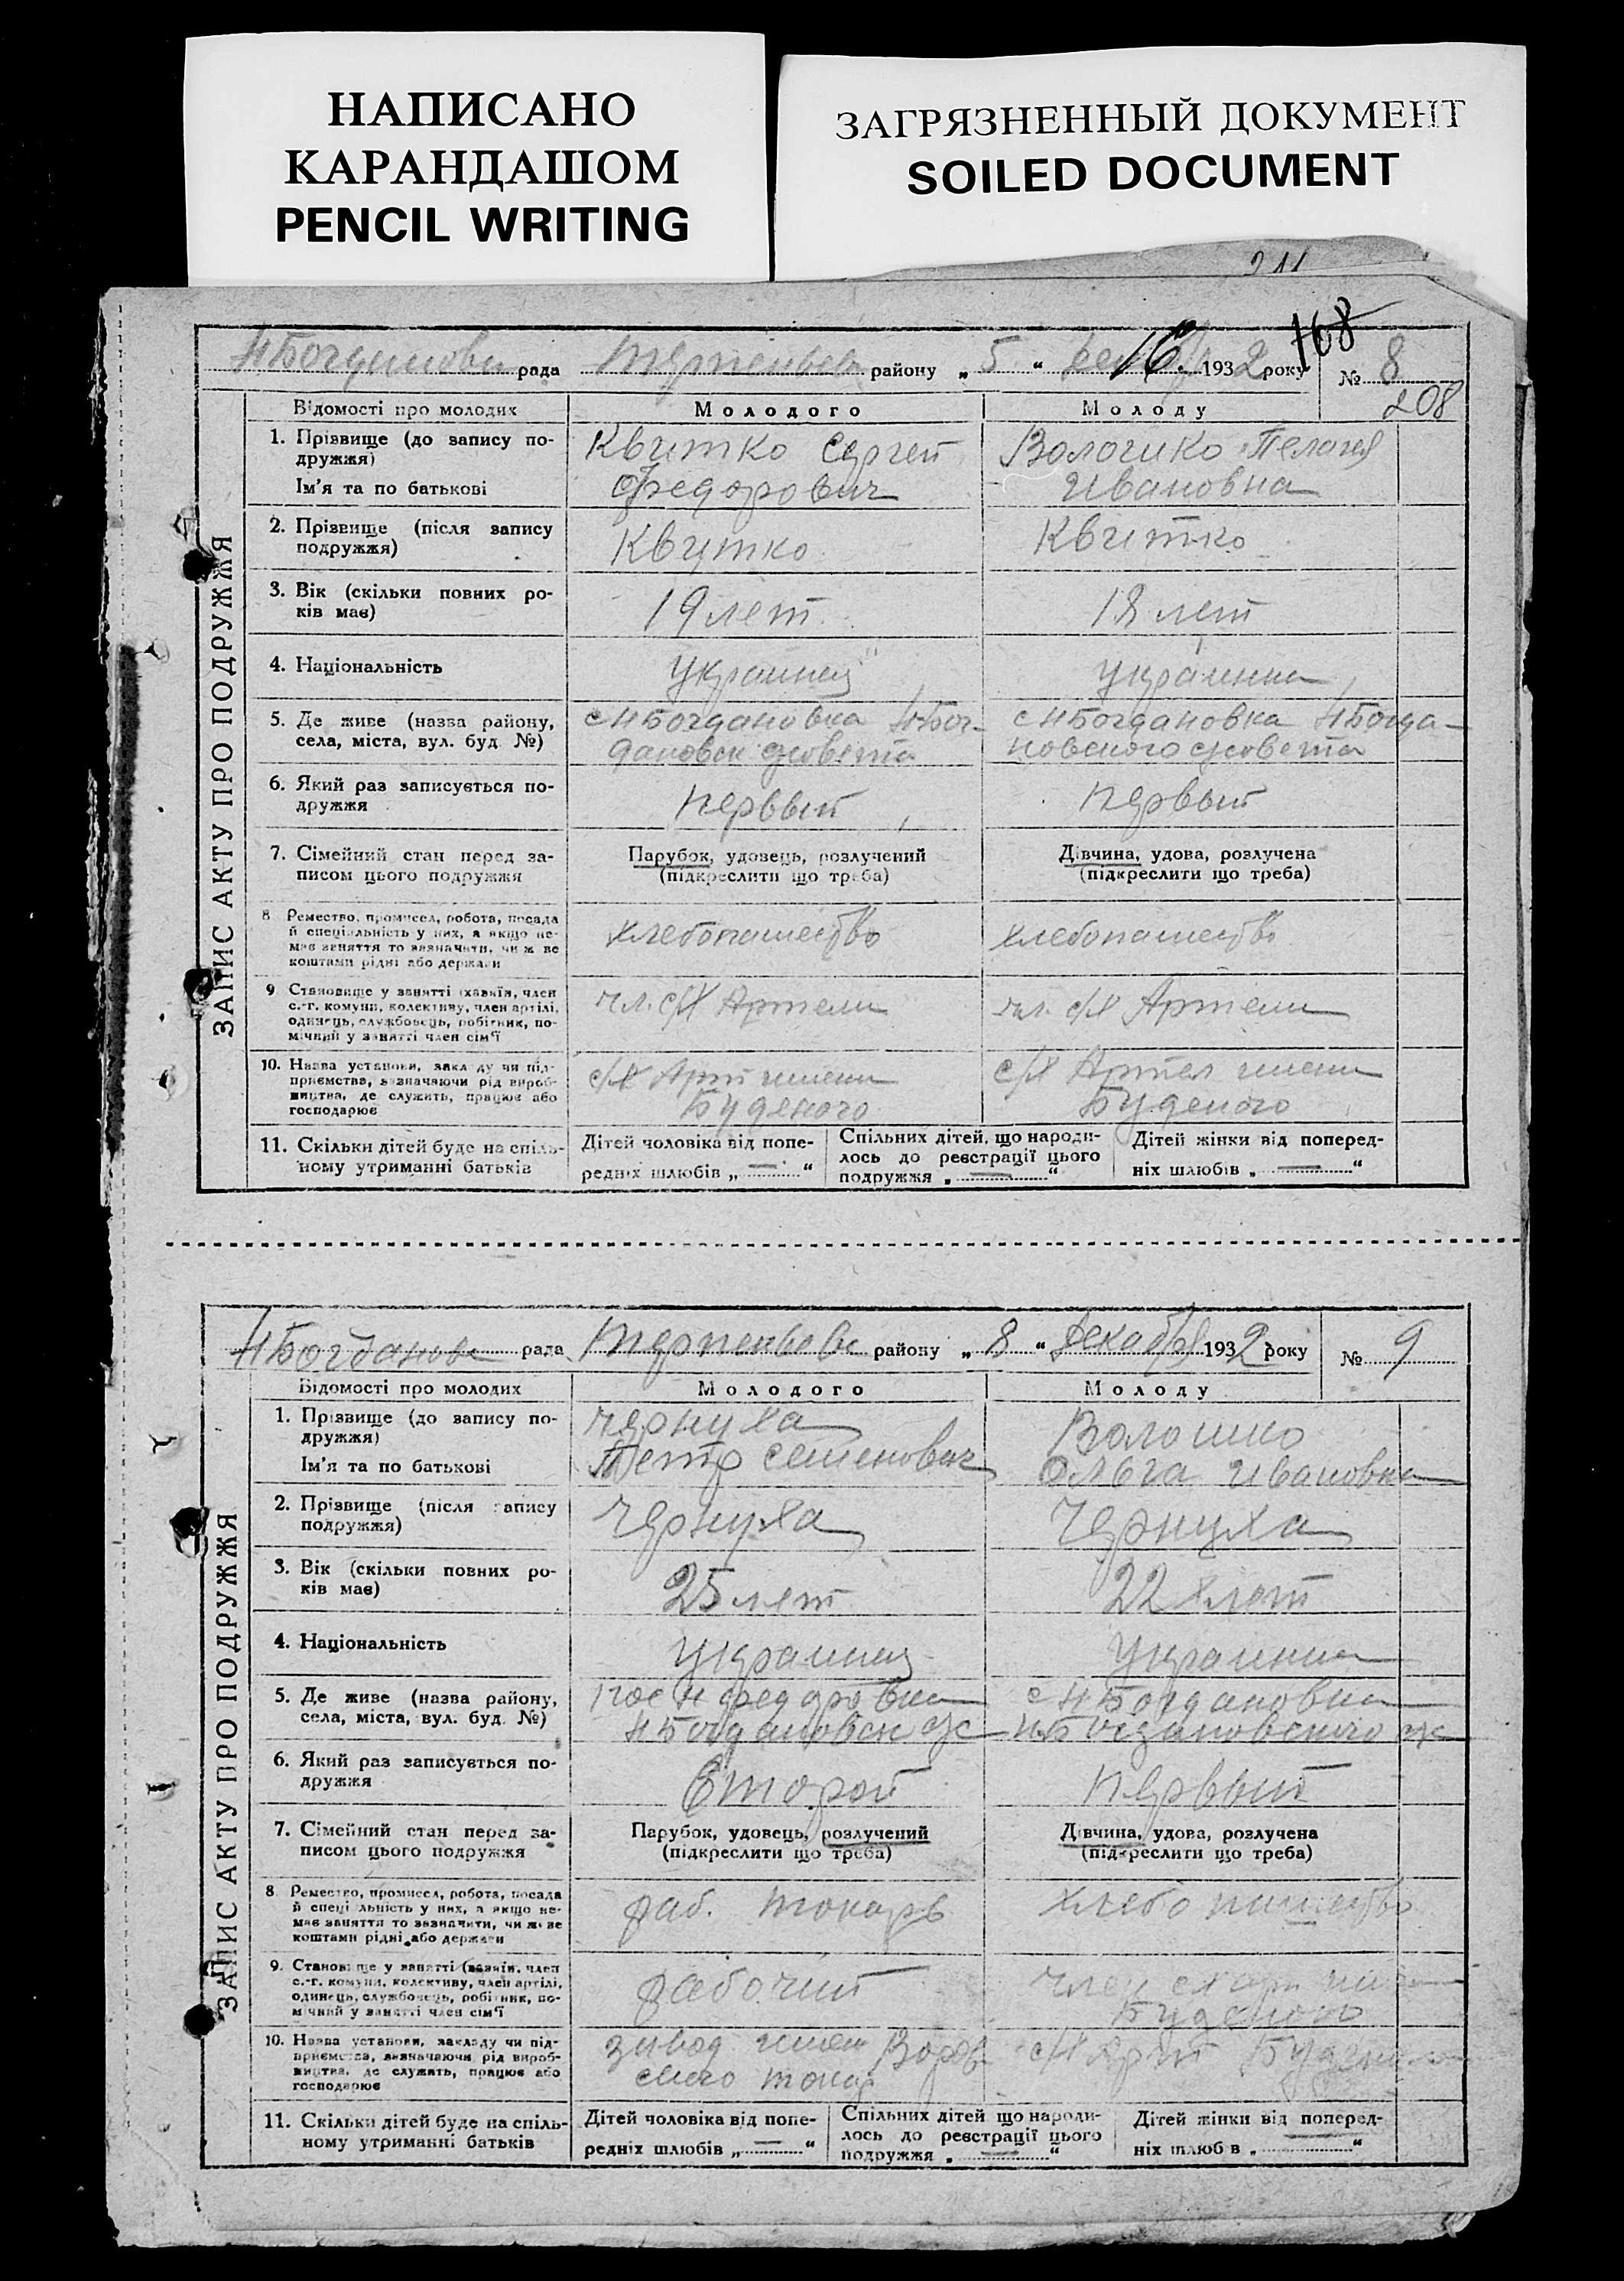 НАПИСАНО
КАРАНДАШОМ
PENCIL WRITING
ЗАГРЯЗНЕННЫЙ ДОКУМЕНТ
SOILED DOCUMENT
211
168
Н Богданови рада района району „ 5 “ 16 1932 року № 8
208
ЗАПИС АКТУ ПРО ПОДРУЖЖЯ
Відомості про молодих Молодого Молоду
1. Прізвище (до запису подружжя)
Ім'я та по батькові
Квитко Сергей
Федорович
Волошко Пелагея
Ивановна
2. Прізвище (після запису
подружжя)
Квитко Квитко
3. Вік (скільки повних ро-
ків має)
19 лет 18 лет
4. Національність Украинец Украинка
5. Де живе (назва району,
села, міста, вул. буд. №)
с Н Богдановка Н Бог-
дановск с/совета
с Н Богдановка Н Богда-
новского с/совета
6. Який раз записується по-
дружжя
первый первый
7. Сімейний стан перед за-
писом цього подружжя
Парубок, удовець, розлучений
(підкреслити що треба)
Дівчина, удова, розлучена
(підкреслити що треба)
8 Ремество, промисел, робота, посада
й спеціальність у них, а якщо не-
має заняття то зазначити, чи ж ве
коштами рідні або держави
хлебопашество хлебопашество
9 Становище у занятті (хазяїн, член
с.-г. комуни, колективу, член артілі,
одинець, службовець, робітник, по-
мічний у занятті член сім'ї
чл. с/х Артели чл. с/х Артели
10. Назва установи, закладу чи під-
приємства, зазначаючи рід вироб-
ництва, де служить, працює або
господарює
с/х Арт имени
Буденого
с/х Артел имени
Буденого
11. Скільки дітей буде на спіль-
ному утриманні батьків
Дітей чоловіка від попе-
редніх шлюбів „ — “
Спільних дітей, що народи-
лось до реєстрації цього
подружжя „ — “
Дітей жінки від поперед-
ніх шлюбів „ — “
Н Богданов рада району „ 8 “ Декабря 1932 року № 9
ЗАПИС АКТУ ПРО ПОДРУЖЖЯ
Відомості про молодих Молодого Молоду
1. Прізвище (до запису по-
дружжя)
Ім'я та по батькові
Чернуха
Петр Семенович
Волошко
Ольга Ивановна
2. Прізвище (після запису
подружжя)
Чернуха Чернуха
3. Вік (скільки повних ро-
ків має)
25 лет 22 лет
4. Національність Украинец Украинка
5. Де живе (назва району,
села, міста, вул. буд. №)
Н Федоровка
Н Богдановск с/с
с Н Богдановка
Н Богдановского с/с
6. Який раз записується по-
дружжя
Второй первый
7. Сімейний стан перед за-
писом цього подружжя
Парубок, удовець, розлучений
(підкреслити що треба)
Дівчина, удова, розлучена
(підкреслити що треба)
8 Ремество, промисел, робота, посада
й спеціальність у них, а якщо не-
має заняття то зазначити, чи ж ве
коштами рідні або держави
раб. токарь хлебопашество
9. Становище у занятті (хазяїн, член
с.-г. комуни, колективу, член артілі,
одинець, службовець, робітник, по-
мічний у занятті член сім'ї
рабочий
член
Буденого
10. Назва установи, закладу чи під-
приємства, зазначаючи рід вироб-
ництва, де служить, працює або
господарює
завод имен
с/х Арт Буденого
11. Скільки дітей буде на спіль-
ному утриманні батьків
Дітей чоловіка від попе-
редніх шлюбів „ — “
Спільних дітей що народи-
лось до реєстрації цього
подружжя „ — “
Дітей жінки від поперед-
ніх шлюбів „ — “